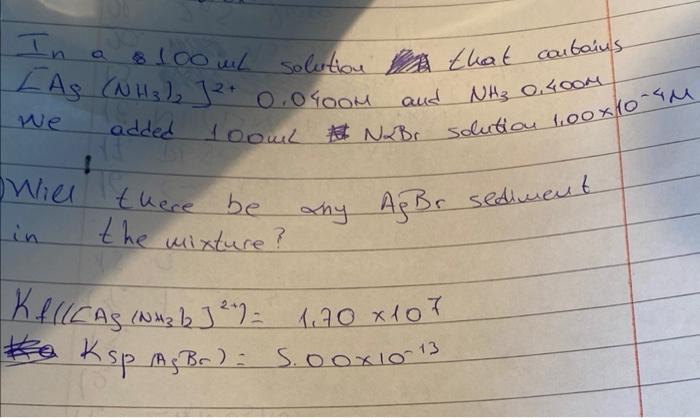 In a 100ml solution that contains
[Ag (NH3)2]2+ 0.0400M and NH3 0.400M
We added 100ml NaBr solution 1.00x10-4M
Will there be any AgBr sediment
in the mixture?
Kf(([Ag(NH3)2]2+)= 1.70 x107
Ksp (AgBr)= 5.00x10-13